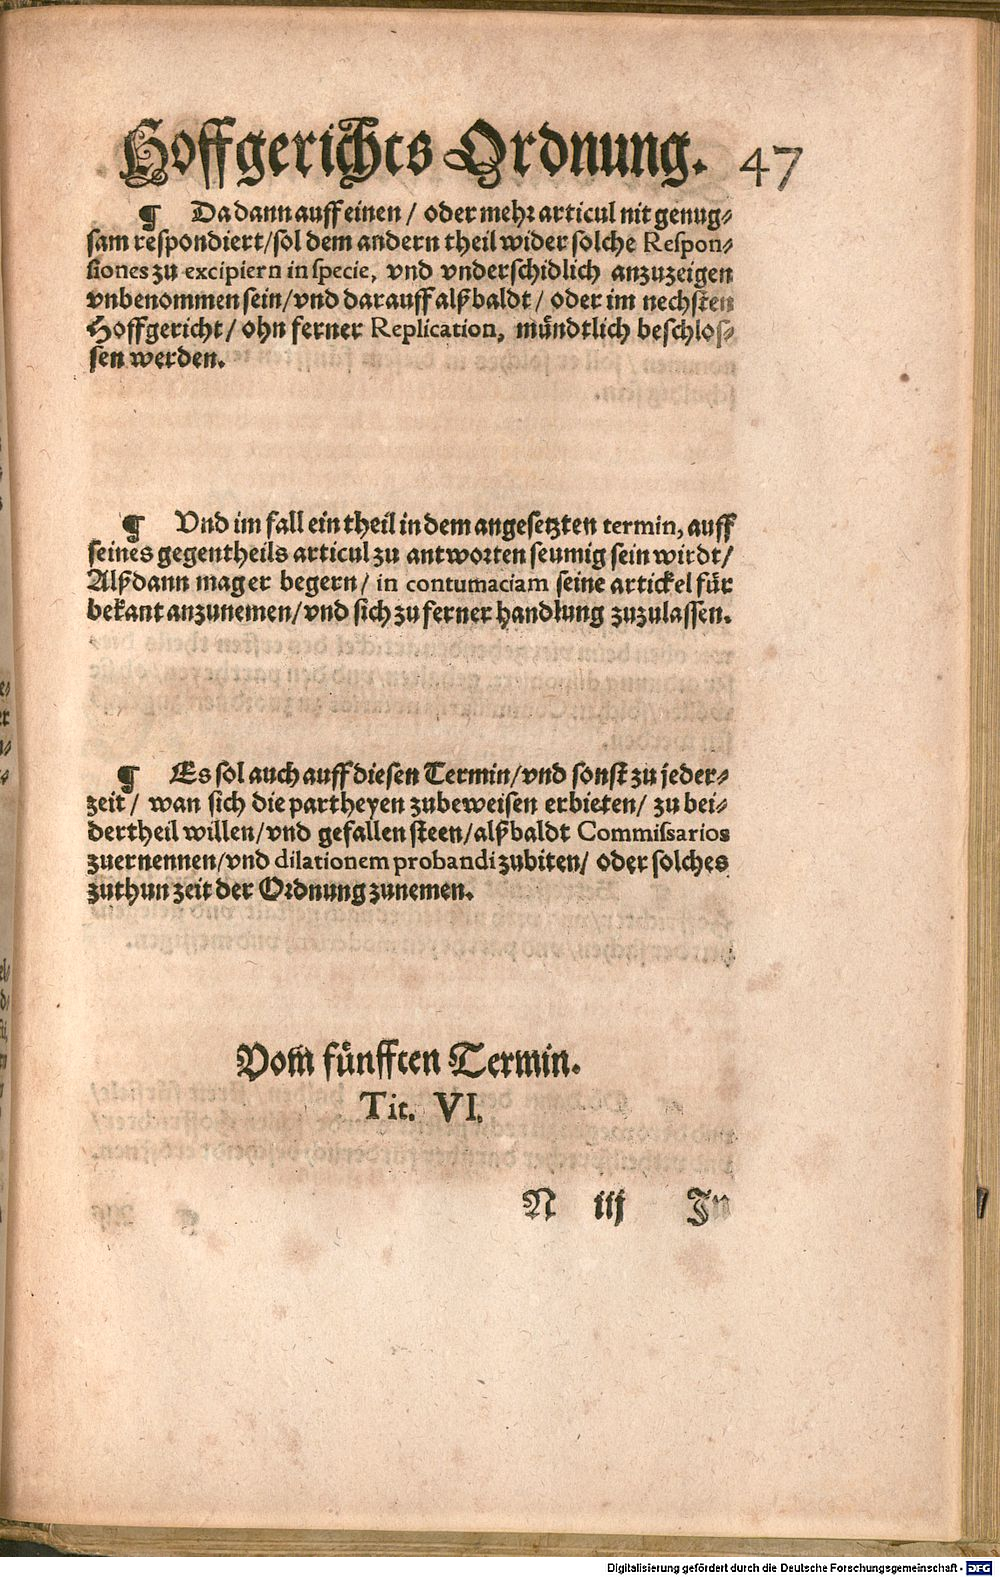 Hoffgerichts Ordnung. 47
¶ Da dann auff einen / oder mehr articul nit genug⸗
sam respondiert/sol dem andern theil wider solche Respon⸗
siones zu excipiern in specie, vnd vnderschidlich anzuzeigen
vnbenommen sein/vnd darauff alßbaldt / oder im nechsten
Hoffgericht / ohn ferner Replication, mündtlich beschlos⸗
sen werden.
¶ Vnd im fall ein theil in dem angesetzten termin, auff
seines gegentheils articul zu antworten seumig sein wirdt/
Alßdann mag er begern / in contumaciam seine artickel für
bekant anzunemen/vnd sich zu ferner handlung zuzulassen.
¶ Es sol auch auff diesen Termin/vnd sonst zu jeder⸗
zeit / wan sich die partheyen zubeweisen erbieten/ zu bei⸗
dertheil willen/vnd gefallen steen/alßbaldt Commissarios
zuernennen/vnd dilationem probandi zubiten/ oder solches
zuthun zeit der Ordnung zunemen.
Vom fünfften Termin.
Tit. VI.
N iij In
Digitalisierung gefördert durch die Deutsche Forschungsgemeinschaft - DFG